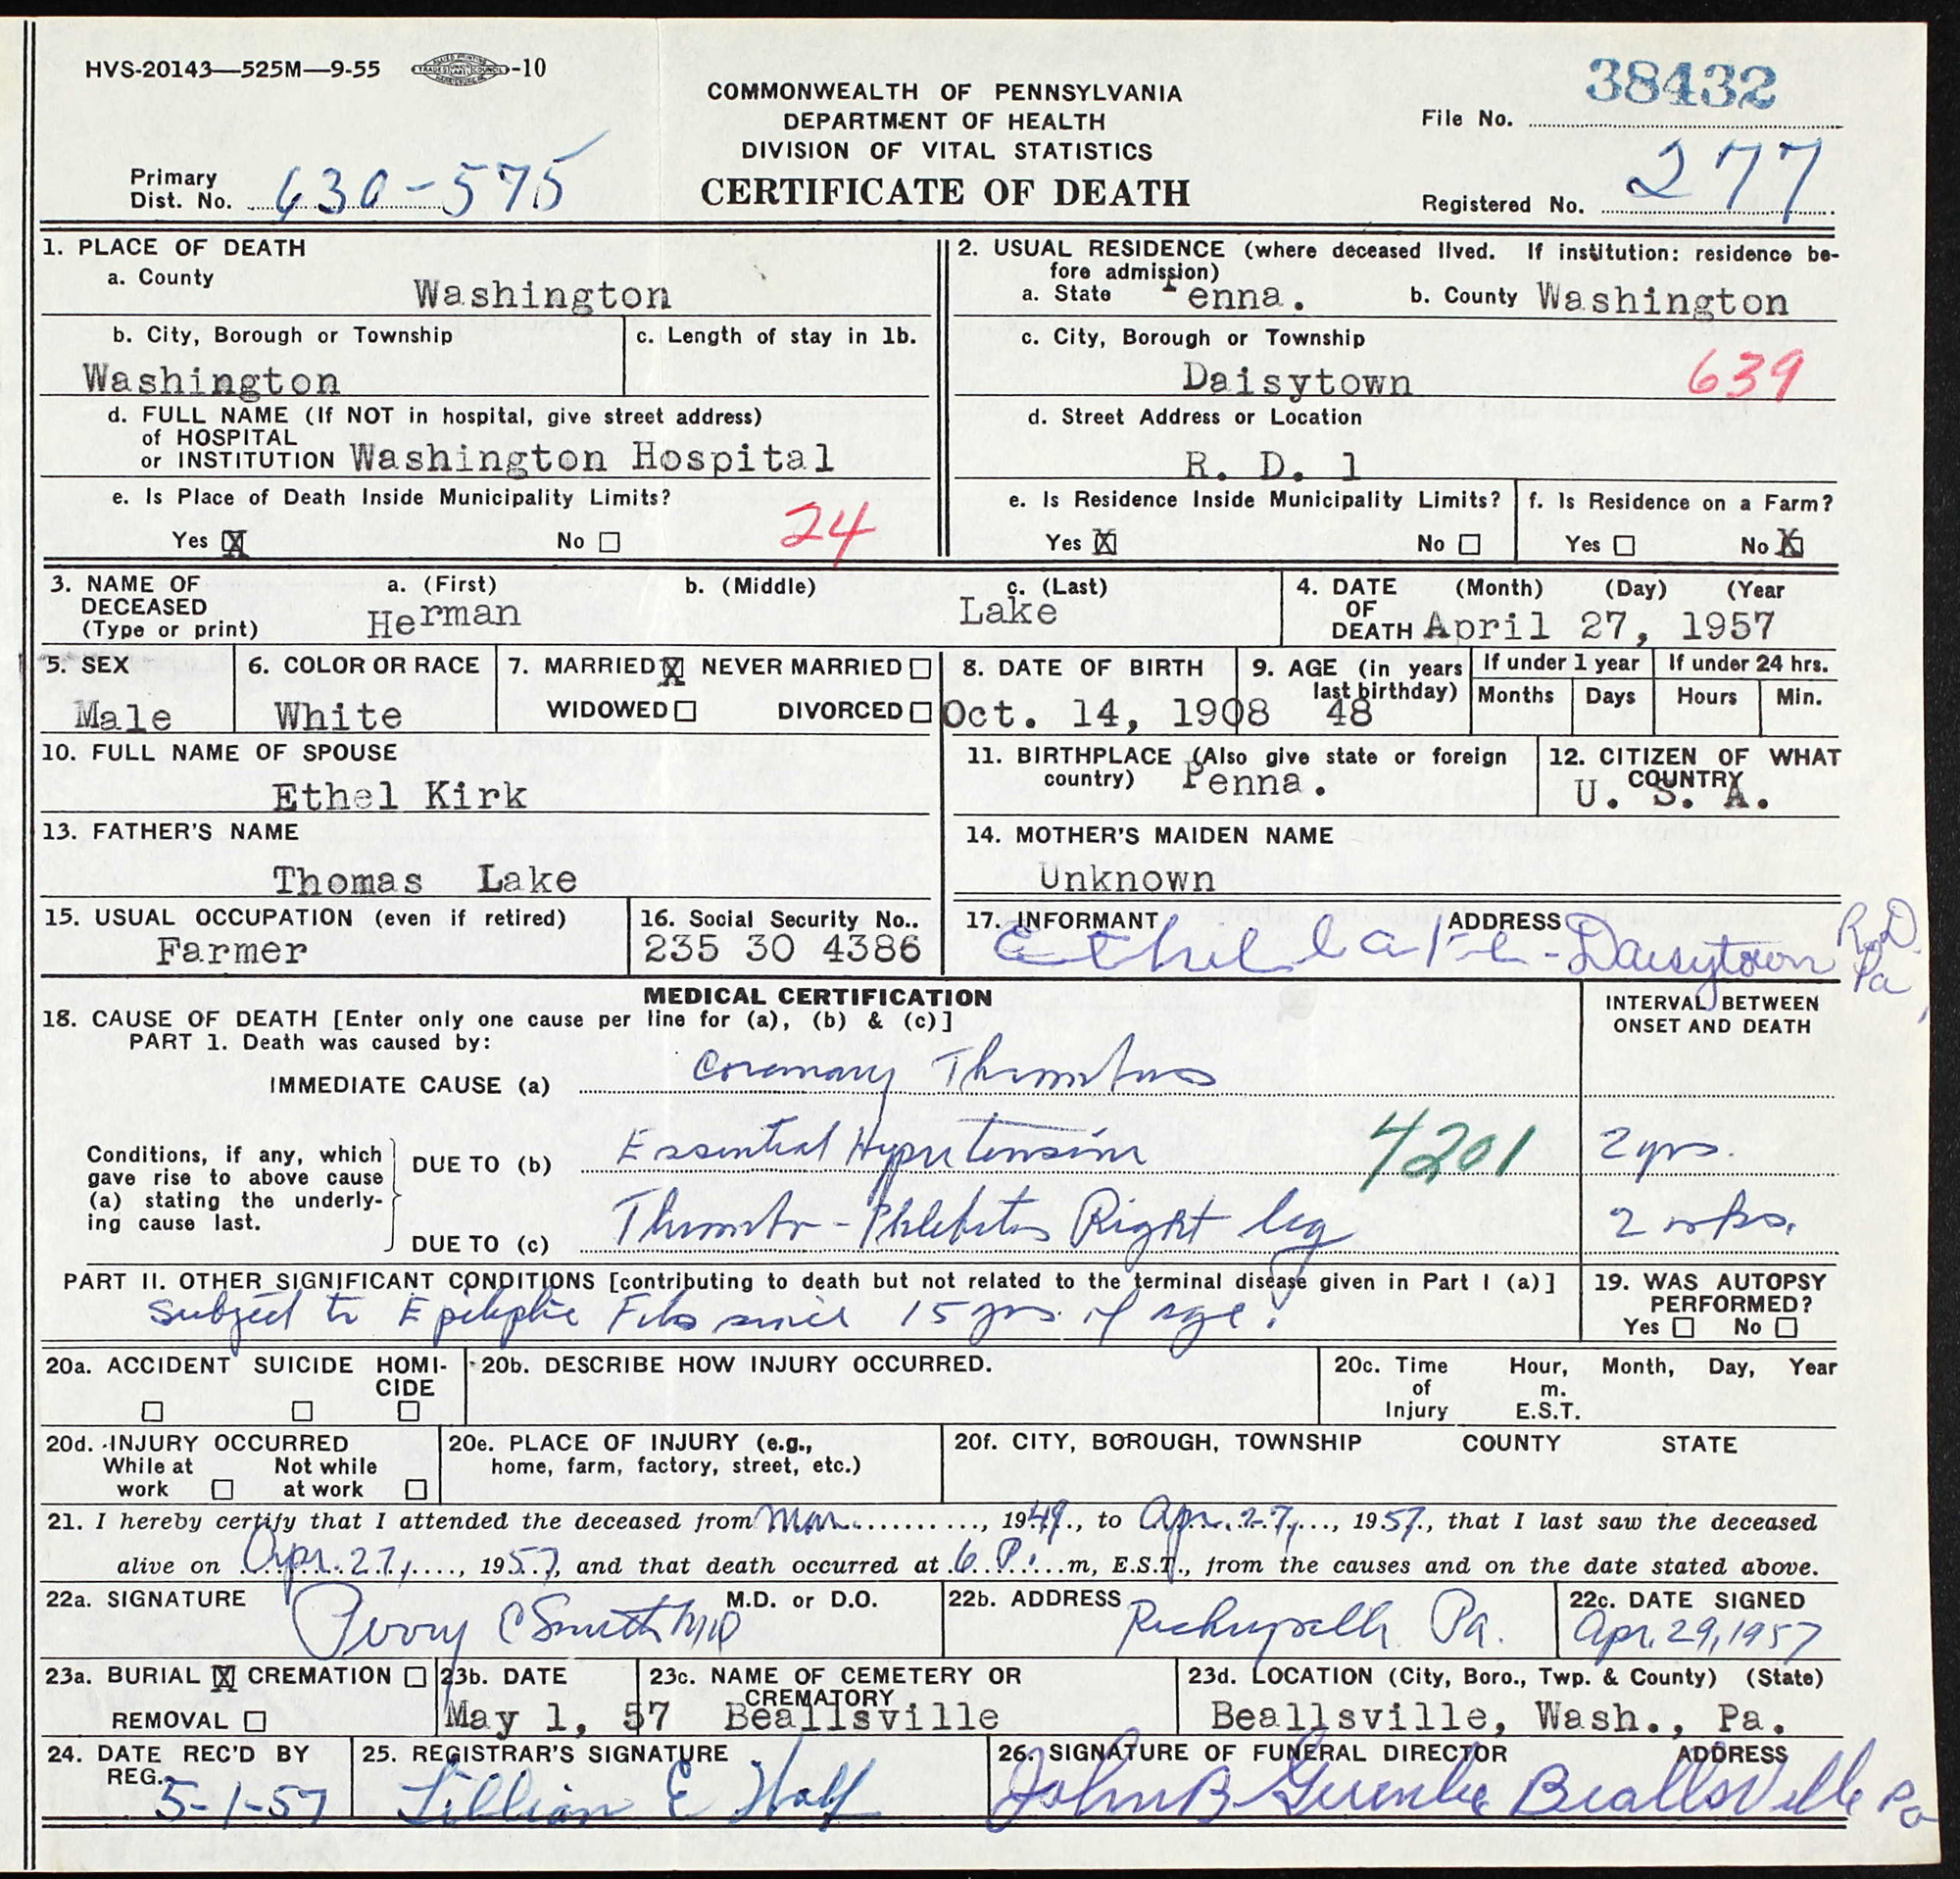 HVS-20143—525M—9-55 -10
38432
COMMONWEALTH OF PENNSYLVANIA
DEPARTMENT OF HEALTH
DIVISION OF VITAL STATISTICS
CERTIFICATE OF DEATH
File No.
Primary
Dist. No. 630-575
Registered No. 277
1. PLACE OF DEATH
a. County
Washington
2. USUAL RESIDENCE (where deceased lived. If institution: residence be-
fore admission)
a. State Penna. b. County Washington
b. City, Borough or Township
Washington
c. Length of stay in 1b.
c. City, Borough or Township
Daisytown 639
d. FULL NAME (If NOT in hospital, give street address)
of HOSPITAL
or INSTITUTION Washington Hospital
d. Street Address or Location
R. D. 1
e. Is Place of Death Inside Municipality Limits?
Yes X No 24
e. Is Residence Inside Municipality Limits?
Yes X No
f. Is Residence on a Farm?
Yes No X
3. NAME OF DECEASED
(Type or print)
a. (First) b. (Middle) c. (Last)
Herman Lake
4. DATE OF DEATH (Month) (Day) (Year
April 27, 1957
5. SEX
Male
6. COLOR OR RACE
White
7. MARRIED X NEVER MARRIED
WIDOWED DIVORCED
8. DATE OF BIRTH
Oct. 14, 1908
9. AGE (in years
last birthday)
48
If under 1 year If under 24 hrs.
Months Days Hours Min.
10. FULL NAME OF SPOUSE
Ethel Kirk
11. BIRTHPLACE (Also give state or foreign
country) Penna.
12. CITIZEN OF WHAT
COUNTRY
U. S. A.
13. FATHER'S NAME
Thomas Lake
14. MOTHER'S MAIDEN NAME
Unknown
15. USUAL OCCUPATION (even if retired)
Farmer
16. Social Security No..
235 30 4386
17. INFORMANT ADDRESS
Ethel Lake - Daisytown R.D. Pa
MEDICAL CERTIFICATION
18. CAUSE OF DEATH [Enter only one cause per line for (a), (b) & (c)]
PART 1. Death was caused by:
INTERVAL BETWEEN
ONSET AND DEATH
IMMEDIATE CAUSE (a) Coronary Thrombus
Conditions, if any, which
gave rise to above cause
(a) stating the underly-
ing cause last.
DUE TO (b) Essential Hypertension 4201 2 yrs.
DUE TO (c) Thrombo-Phlebitis Right leg 2 wks.
PART II. OTHER SIGNIFICANT CONDITIONS [contributing to death but not related to the terminal disease given in Part I (a)]
Subject to Epileptic Fits since 15 yrs. of age.
19. WAS AUTOPSY
PERFORMED?
Yes No
20a. ACCIDENT SUICIDE HOMI-
CIDE
20b. DESCRIBE HOW INJURY OCCURRED.
20c. Time of Injury
Hour, Month, Day, Year
m.
E.S.T.
20d. INJURY OCCURRED
While at work Not while at work
20e. PLACE OF INJURY (e.g.,
home, farm, factory, street, etc.)
20f. CITY, BOROUGH, TOWNSHIP COUNTY STATE
21. I hereby certify that I attended the deceased from Mar. ........., 1949., to Apr. 27, ..., 1957., that I last saw the deceased
alive on Apr. 27, ...., 1957, and that death occurred at 6 P. ...m, E.S.T., from the causes and on the date stated above.
22a. SIGNATURE M.D. or D.O.
Perry C Smith MD
22b. ADDRESS
Pa.
22c. DATE SIGNED
Apr. 29, 1957
23a. BURIAL X CREMATION
REMOVAL
23b. DATE
May 1, 57
23c. NAME OF CEMETERY OR
CREMATORY
Beallsville
23d. LOCATION (City, Boro., Twp. & County) (State)
Beallsville, Wash., Pa.
24. DATE REC'D BY
REG.
5-1-57
25. REGISTRAR'S SIGNATURE
Lillian E
26. SIGNATURE OF FUNERAL DIRECTOR ADDRESS
John B Beallsville Pa